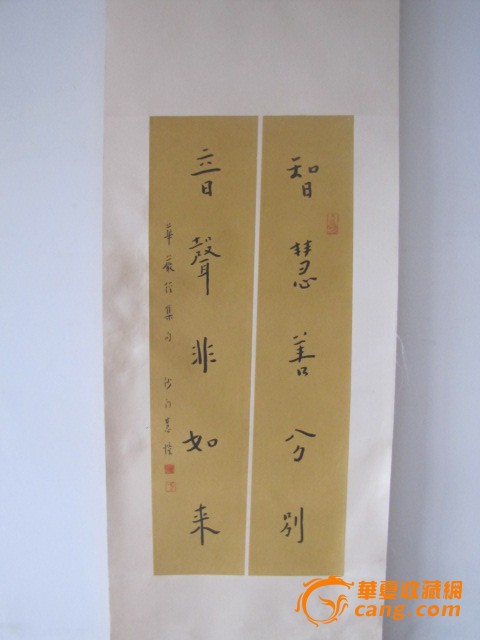 智慧善分別
音聲非如来
華嚴經集句 沙門慧
華夏收藏網
cang.com